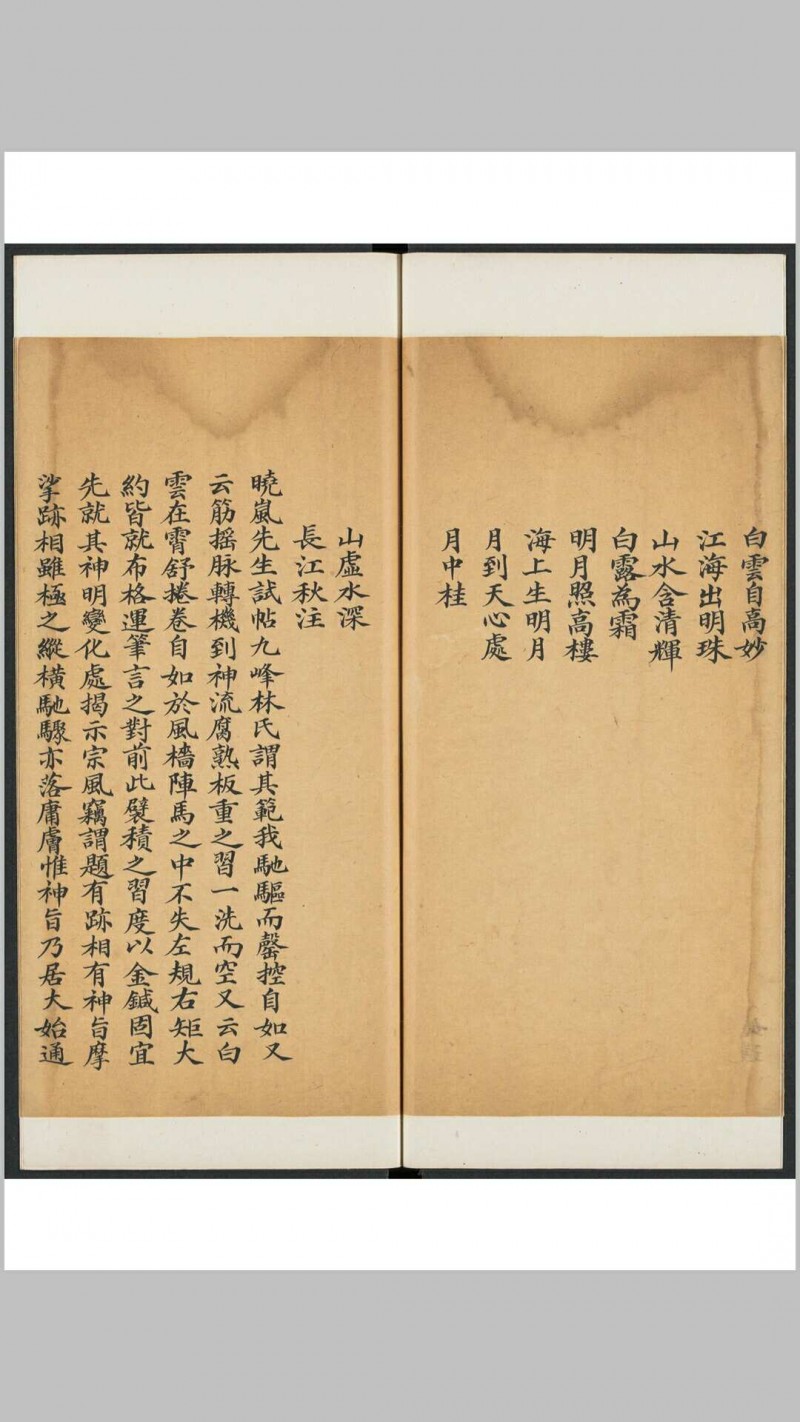 白雲自高妙
江海出明珠
山水含清輝
白露為霜
明月照高樓
海上生明月
月到天心處
月中桂
山虛水深
長江秋注
曉嵐先生試帖九峰林氏謂其範我馳驅而罄控自如又
云筋摇脉轉機到神流腐熟板重之習一洗而空又云白
雲在霄舒捲卷自如於風檣陣馬之中不失左規右矩大
約皆就布格運筆言之對前此襞積之習度以金鍼固宜
先就其神明變化處揭示宗風竊謂題有跡相有神旨摩
挲跡相雖極之縱橫馳驟亦落庸膚惟神旨乃居大始通